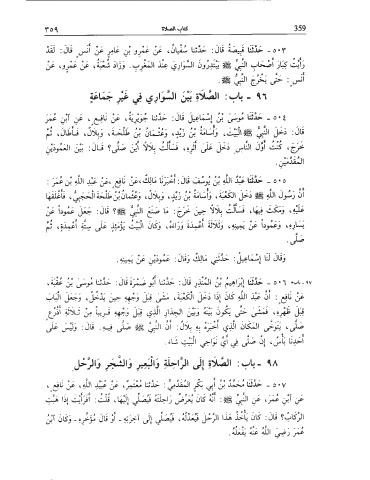 ٣٥٩ كتاب الصلاة 359
٥٠٣ - حَدَّثَنَا قَبِيصَةُ قَالَ: حَدَّثَنَا سُفْيَانُ، عَنْ عَمْرِو بْنِ عَامِرٍ عَنْ أَنَسٍ قَالَ: لَقَدْ
رَأَيْتُ كِبَارَ أَصْحَابِ النَّبِيِّ ﷺ يَبْتَدِرُونَ السَّوَارِيَ عِنْدَ المَغْرِبِ. وَزَادَ شُعْبَةُ، عَنْ عَمْرٍو، عَنْ
أَنَسٍ: حَتَّى يَخْرُجَ النَّبِيُّ ﷺ.
٩٦ - باب: الصَّلاَةِ بَيْنَ السَّوَارِي فِي غَيْرِ جَمَاعَةٍ
٥٠٤ - حَدَّثَنَا مُوسَى بْنُ إِسْمَاعِيلَ قَالَ: حَدَّثَنَا جُوَيْرِيَةُ، عَنْ نَافِعٍ، عَنِ ابْنِ عُمَرَ
قَالَ: دَخَلَ النَّبِيُّ ﷺ الْبَيْتَ، وَأُسَامَةُ بْنُ زَيْدٍ، وَعُثْمَانُ بْنُ طَلْحَةَ، وَبِلاَلٌ، فَأَطَالَ، ثُمَّ
خَرَجَ، كُنْتُ أَوَّلَ النَّاسِ دَخَلَ عَلَى أَثَرِهِ، فَسَأَلْتُ بِلاَلاً أَيْنَ صَلَّى؟ قَالَ: بَيْنَ العَمُودَيْنِ
المُقَدَّمَيْنِ.
٥٠٥ - حَدَّثَنَا عَبْدُ اللَّهِ بْنُ يُوسُفَ قَالَ: أَخْبَرَنَا مَالِكٌ، عَنْ نَافِعٍ، عَنْ عَبْدِ اللَّهِ بْنِ عُمَرَ:
أَنَّ رَسُولَ اللَّهِ ﷺ دَخَلَ الكَعْبَةَ، وَأُسَامَةُ بْنُ زَيْدٍ، وَبِلاَلٌ، وَعُثْمَانُ بْنُ طَلْحَةَ الحَجَبِيُّ، فَأَغْلَقَهَا
عَلَيْهِ، وَمَكَثَ فِيهَا، فَسَأَلْتُ بِلاَلاً حِينَ خَرَجَ: مَا صَنَعَ النَّبِيُّ ﷺ؟ قَالَ: جَعَلَ عَمُوداً عَنْ
يَسَارِهِ، وَعَمُوداً عَنْ يَمِينِهِ، وَثَلاَثَةَ أَعْمِدَةٍ وَرَاءَهُ، وَكَانَ البَيْتُ يَوْمَئِذٍ عَلَى سِتَّةِ أَعْمِدَةٍ، ثُمَّ
صَلَّى.
وَقَالَ لَنَا إِسْمَاعِيلُ: حَدَّثَنِي مَالِكٌ وَقَالَ: عَمُودَيْنِ عَنْ يَمِينِهِ.
٥٠٦ - حَدَّثَنَا إِبْرَاهِيمُ بْنُ المُنْذِرِ قَالَ: حَدَّثَنَا أَبُو ضَمْرَةَ قَالَ: حَدَّثَنَا مُوسَى بْنُ عُقْبَةَ،
عَنْ نَافِعٍ: أَنَّ عَبْدَ اللَّهِ كَانَ إِذَا دَخَلَ الكَعْبَةَ، مَشَى قِبَلَ وَجْهِهِ حِينَ يَدْخُلُ، وَجَعَلَ البَابَ
قِبَلَ ظَهْرِهِ، فَمَشَى حَتَّى يَكُونَ بَيْنَهُ وَبَيْنَ الجِدَارِ الَّذِي قِبَلَ وَجْهِهِ قَرِيباً مِنْ ثَلاَثَةِ أَذْرُعٍ
صَلَّى، يَتَوَخَّى المَكَانَ الَّذِي أَخْبَرَهُ بِهِ بِلاَلٌ: أَنَّ النَّبِيَّ ﷺ صَلَّى فِيهِ. قَالَ: وَلَيْسَ عَلَى
أَحَدِنَا بَأْسٌ، إِنْ صَلَّى فِي أَيِّ نَوَاحِي البَيْتِ شَاءَ.
٩٨ - باب: الصَّلاَةِ إِلَى الرَّاحِلَةِ وَالْبَعِيرِ وَالشَّجَرِ وَالرَّحْلِ
٥٠٧ - حَدَّثَنَا مُحَمَّدُ بْنُ أَبِي بَكْرٍ المُقَدَّمِيُّ: حَدَّثَنَا مُعْتَمِرٌ، عَنْ عُبَيْدِ اللَّهِ، عَنْ نَافِعٍ،
عَنِ ابْنِ عُمَرَ، عَنِ النَّبِيِّ ﷺ: أَنَّهُ كَانَ يُعَرِّضُ رَاحِلَتَهُ فَيُصَلِّي إِلَيْهَا، قُلْتُ: أَفَرَأَيْتَ إِذَا هَبَّتِ
الرِّكَابُ؟ قَالَ: كَانَ يَأْخُذُ هَذَا الرَّحْلَ فَيُعَدِّلُهُ، فَيُصَلِّي إِلَى آخِرَتِهِ - أَوْ قَالَ مُؤَخَّرِهِ - وَكَانَ ابْنُ
عُمَرَ رَضِيَ اللَّهُ عَنْهُ يَفْعَلُهُ.